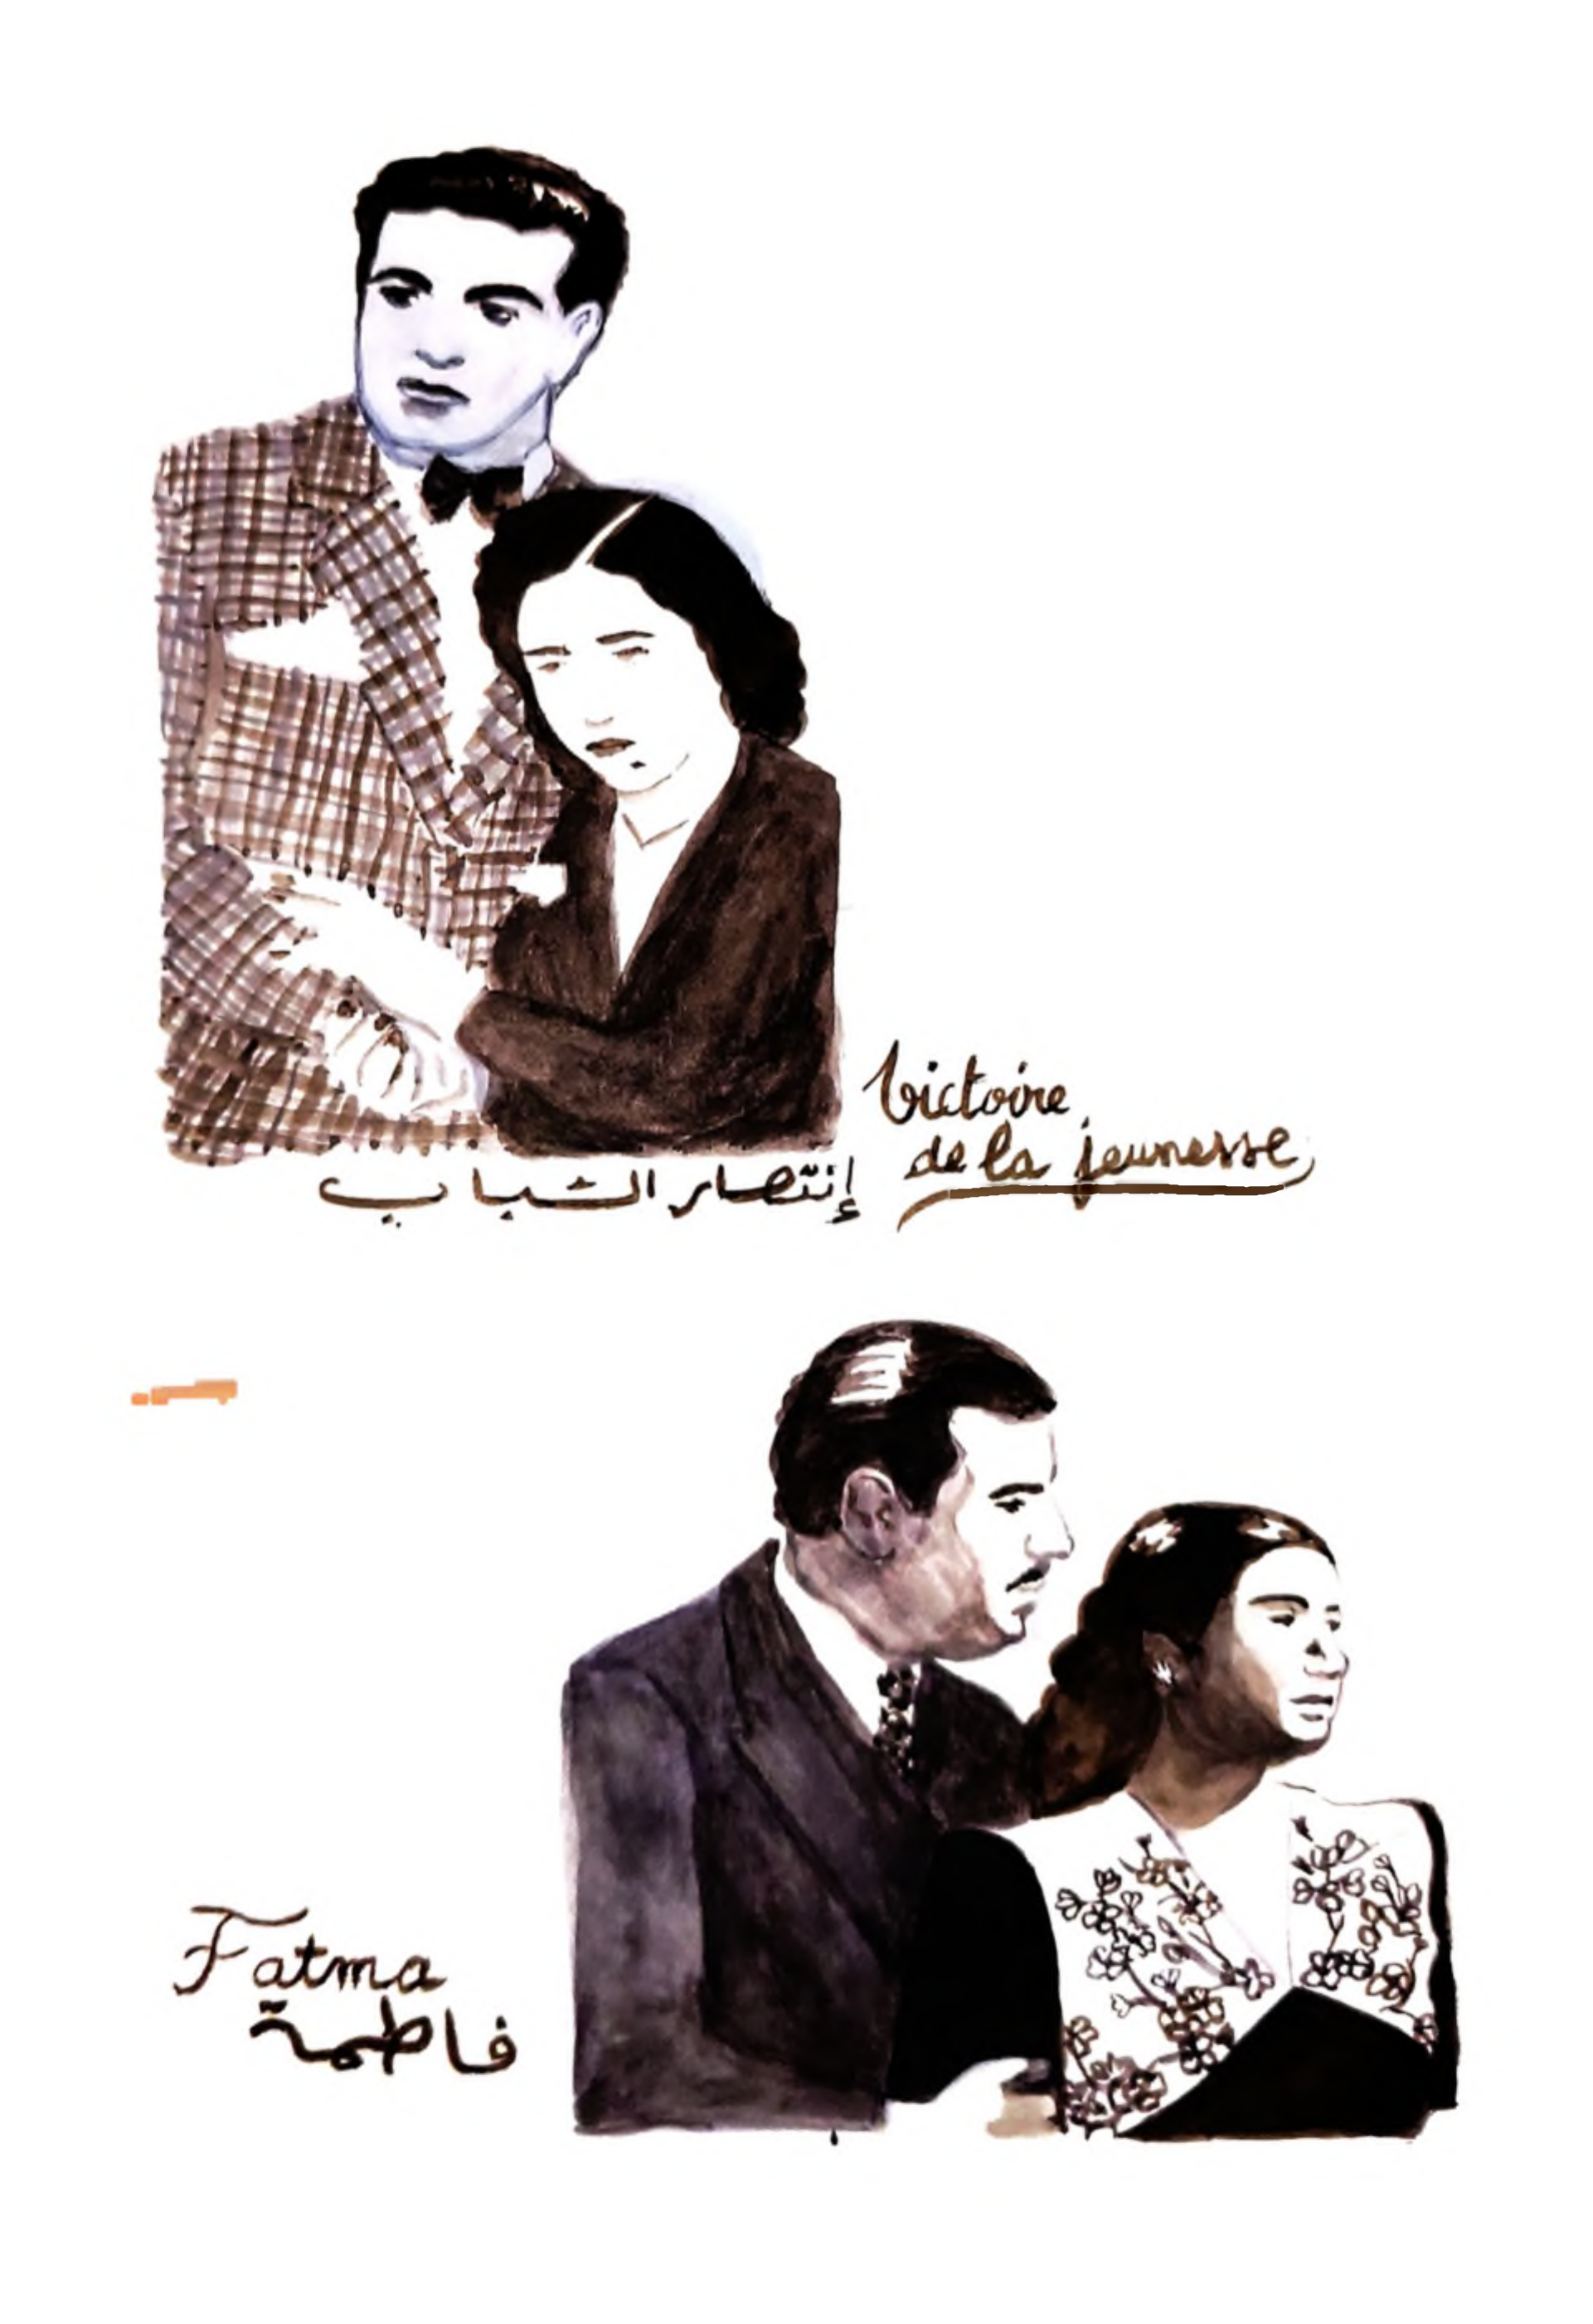 Victoire
de la jeunesse
إنتصار الشباب
Fatma
فاطمة